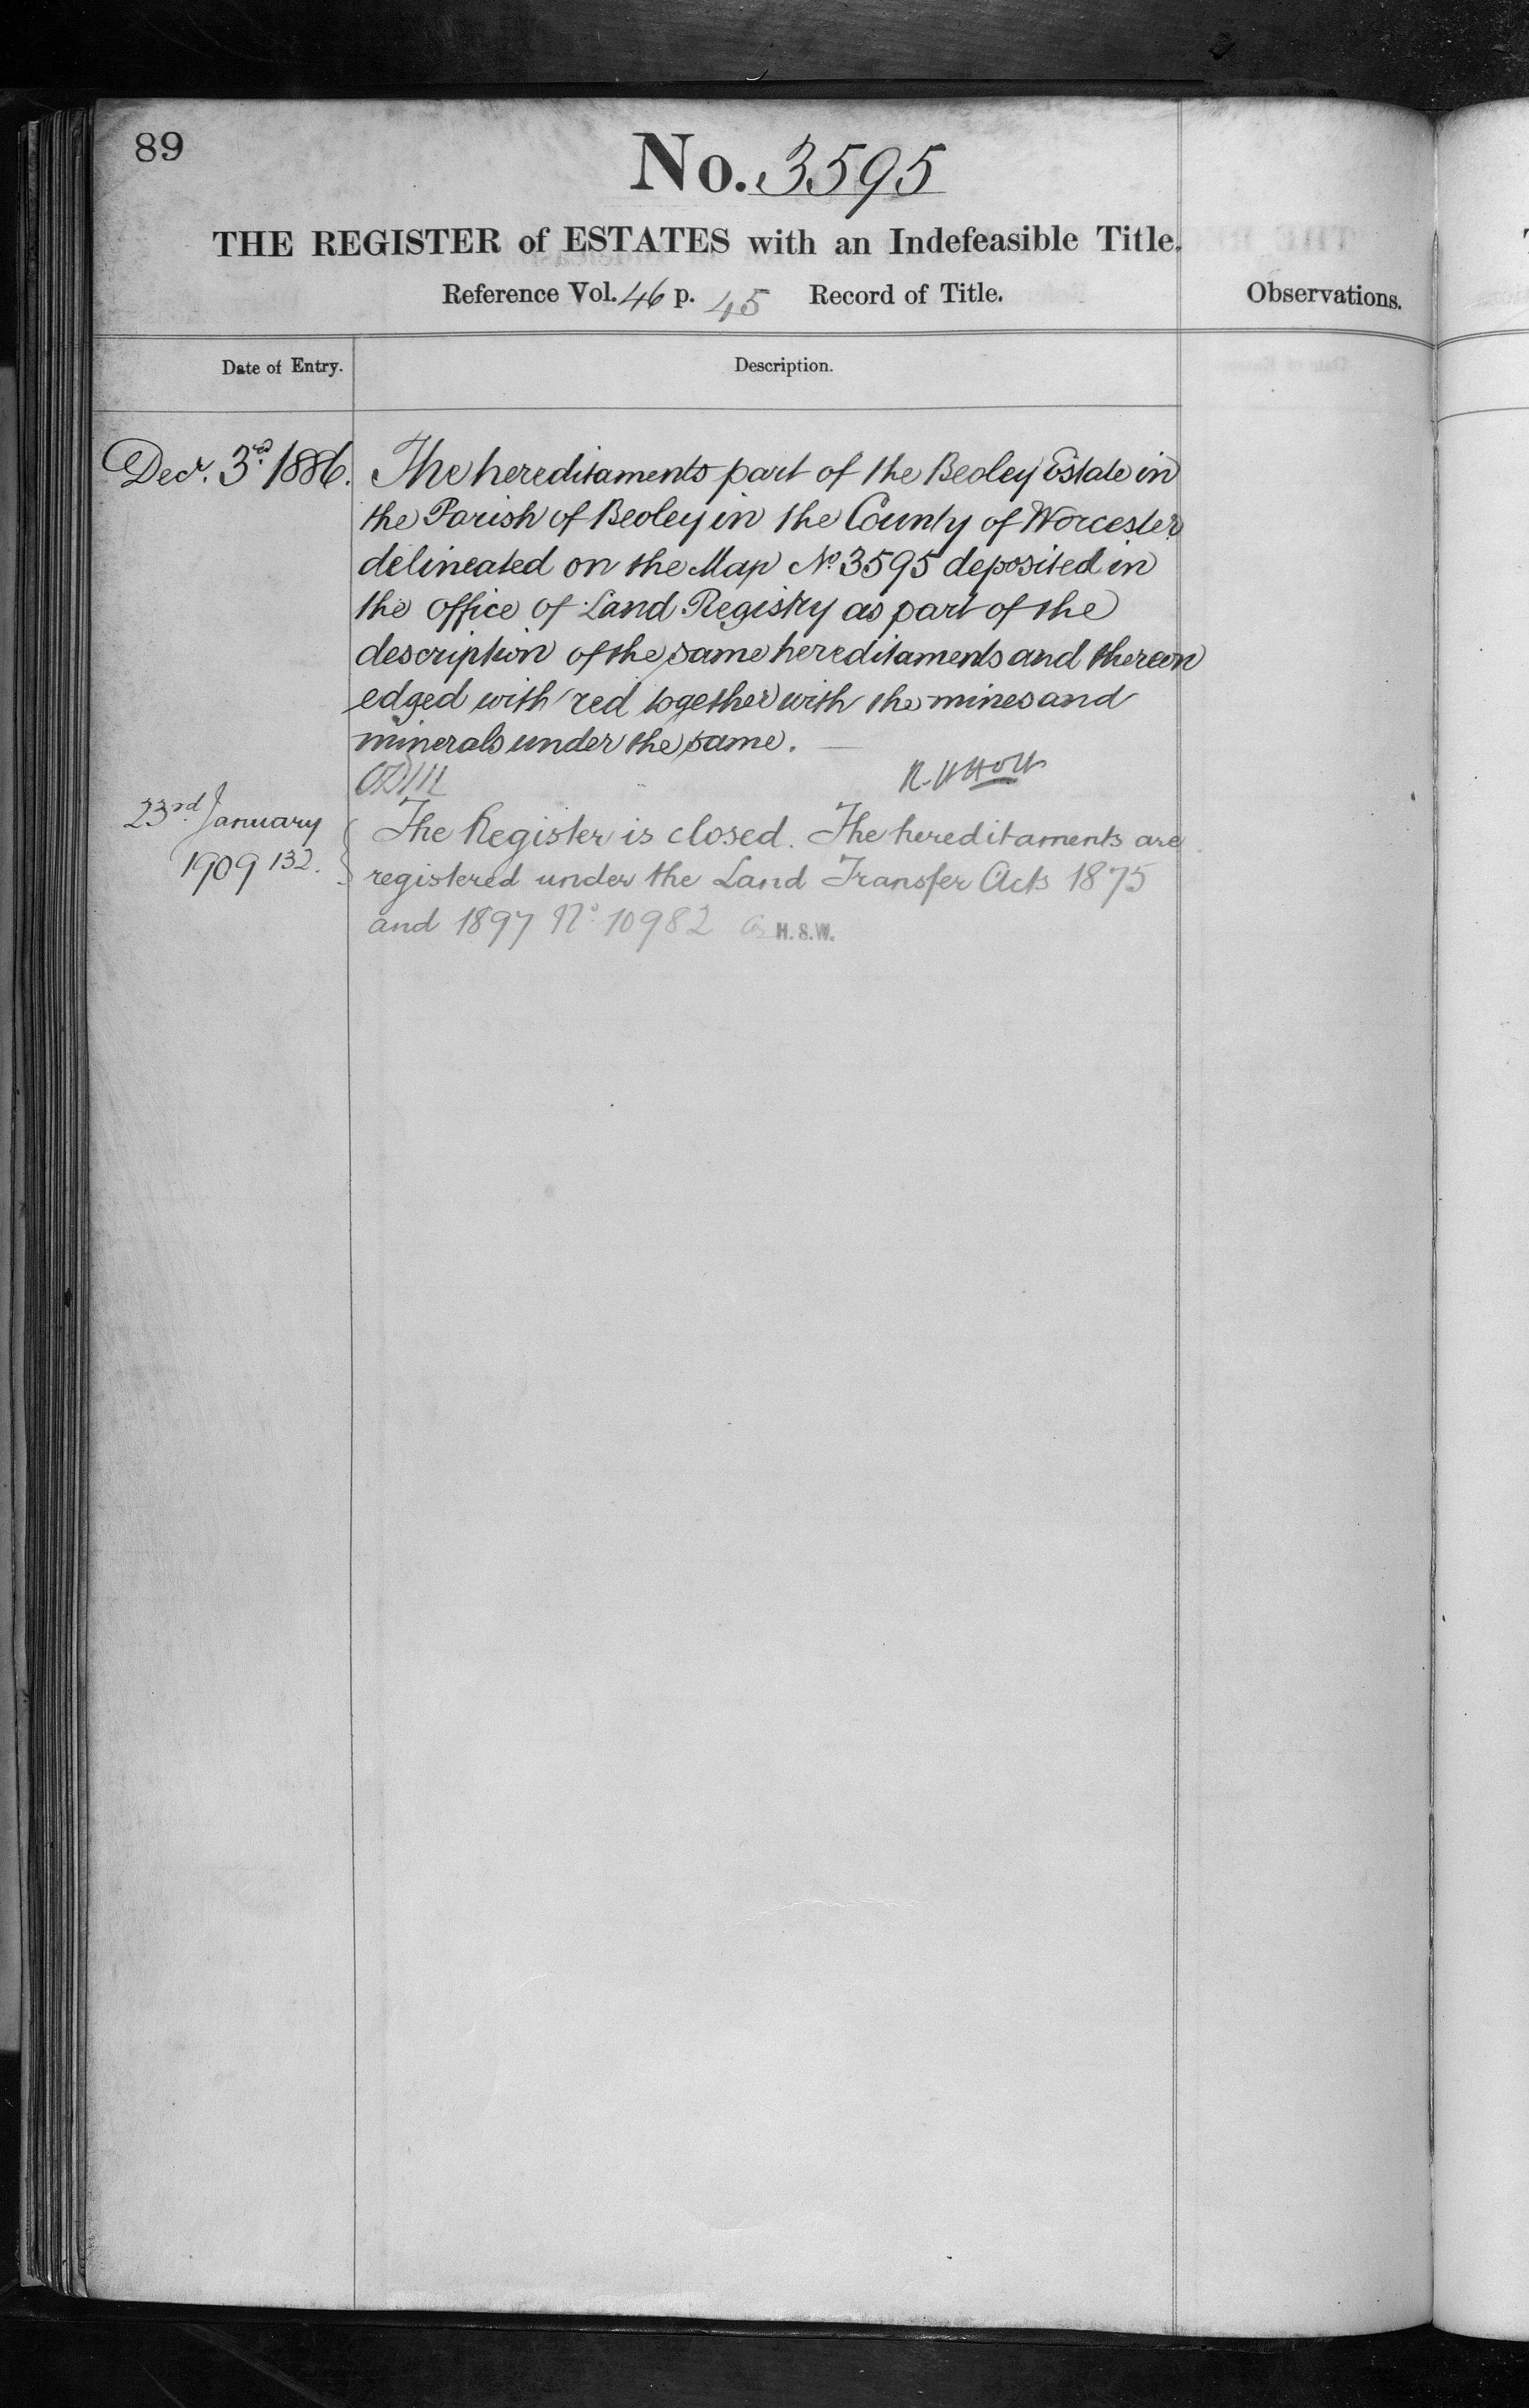 89
No. 3595
THE REGISTER of ESTATES with an Indefeasible Title.
Reference Vol. 46 p. 45 Record of Title.
Observations.
Date of Entry.
Description.
Decr. 3rd 1886.
The hereditaments part of the Beoley Estate in
the Parish of Beoley in the County of Worcester
delineated on the Map No 3595 deposited in
the office of Land Registry as part of the
description of the same hereditaments and thereon
edged with red together with the mines and
minerals under the same. —
R. H Holt
23rd January
1909 132.
The Register is closed. The hereditaments are
registered under the Land Transfer Acts 1875
and 1897 No 10982 H.S.W.